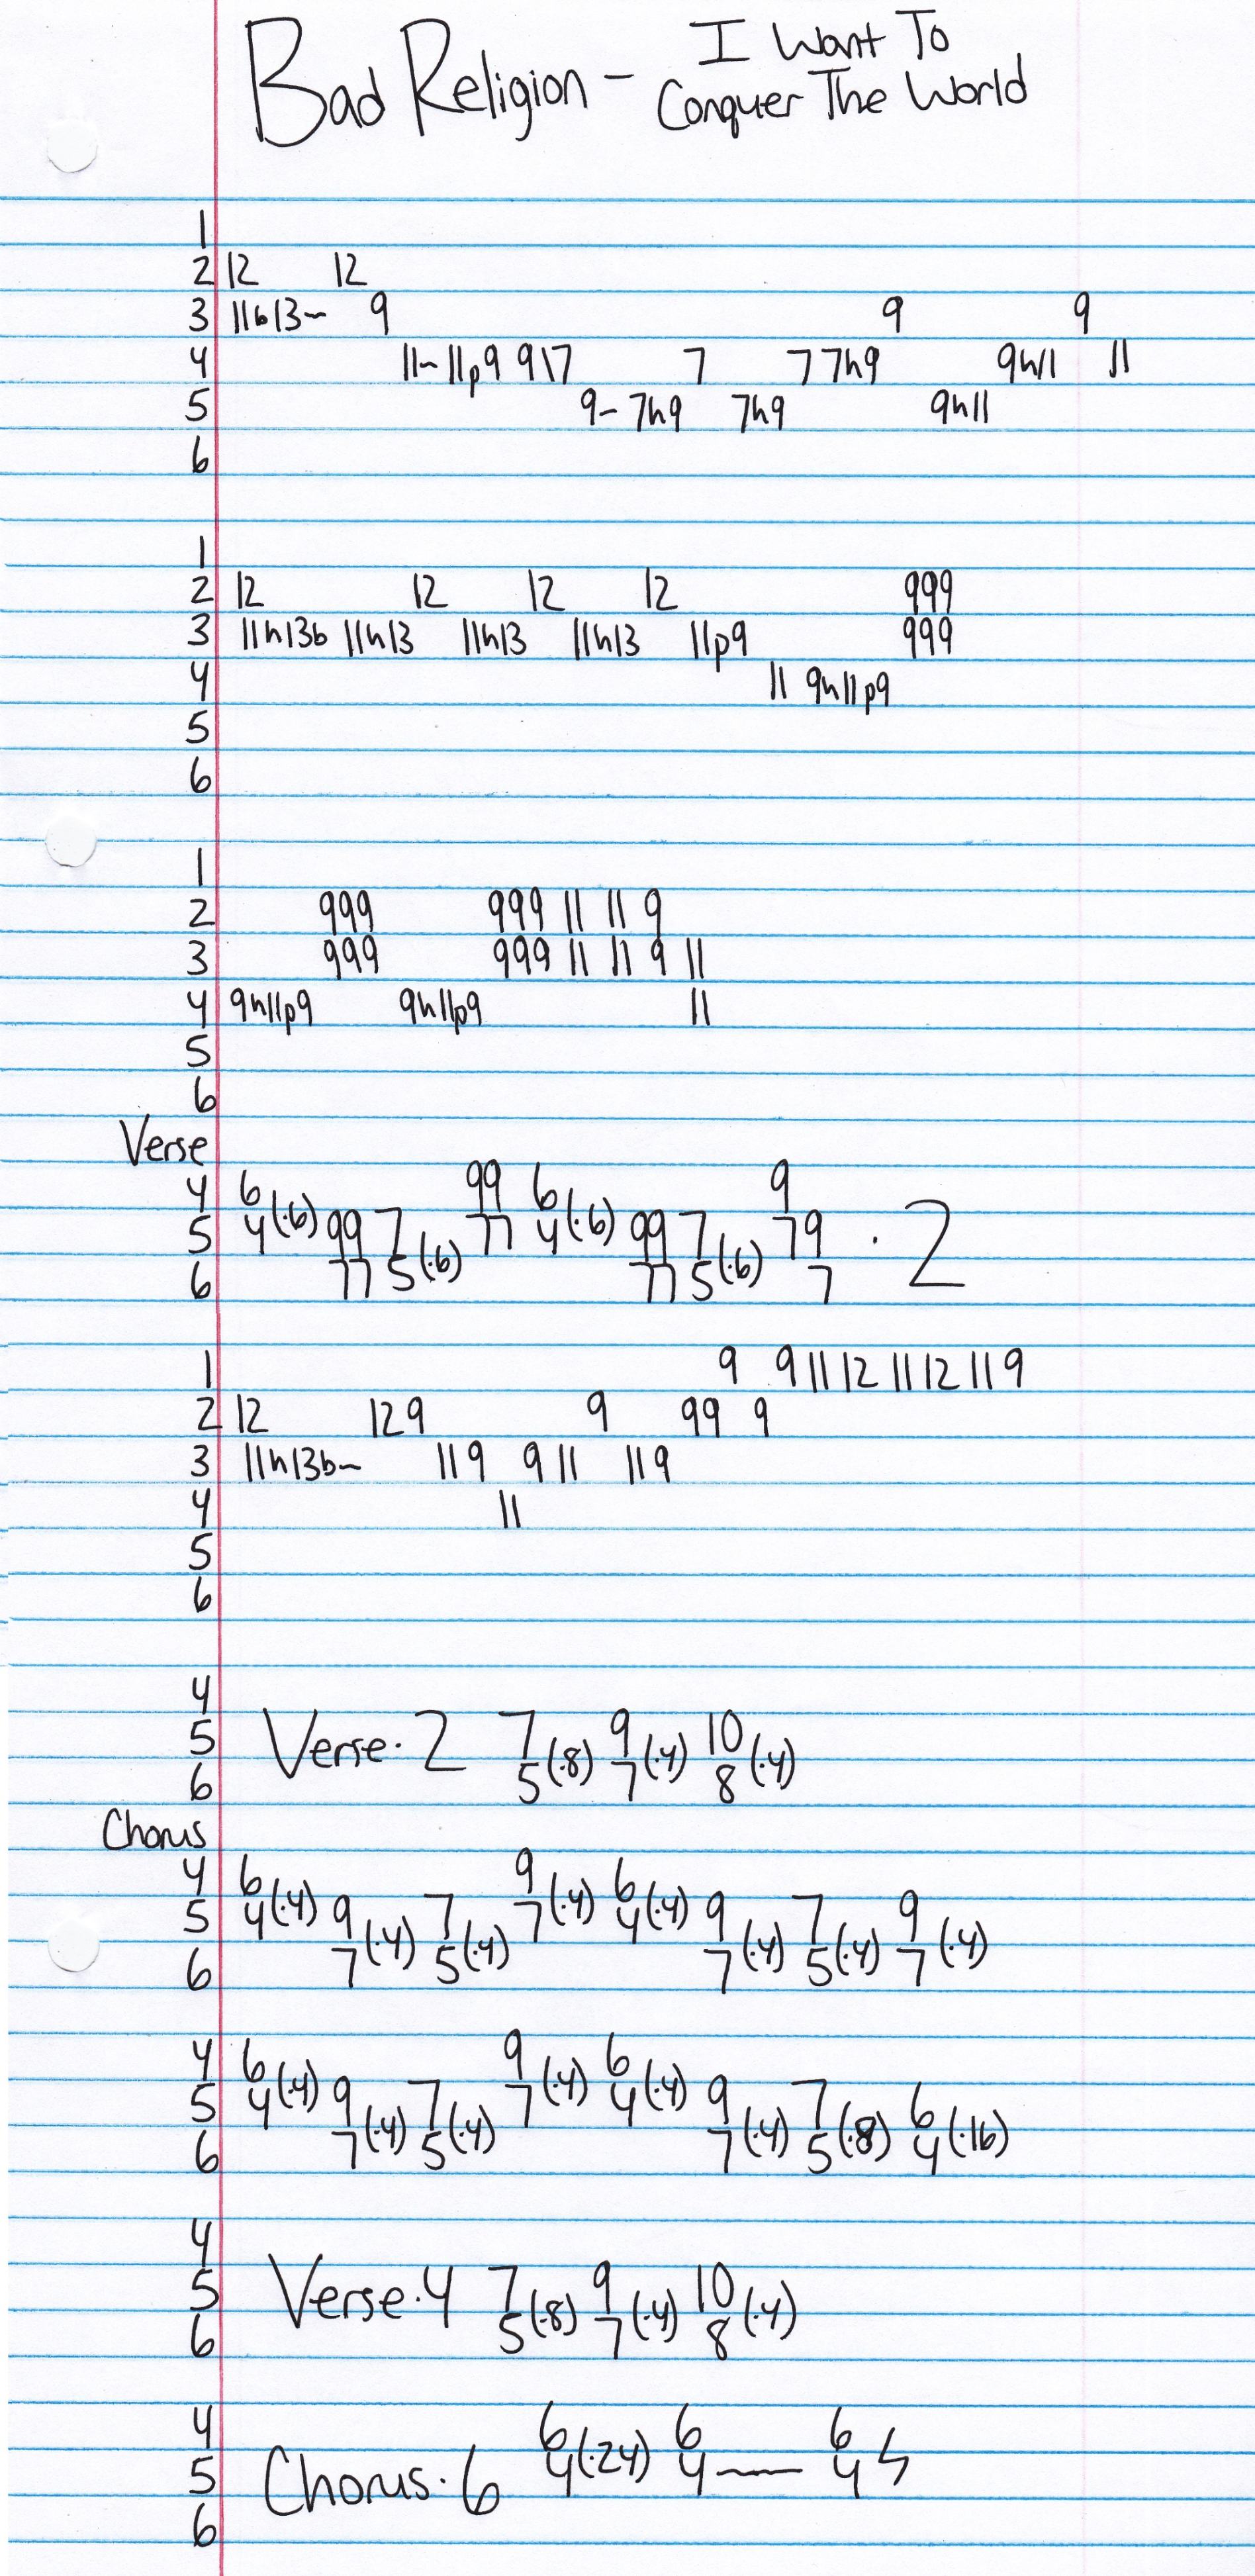 Bad Religion - I Want To
Conquer The World
1
2 12 12
3 11b13~ 9 9 9
4 11~ 11p9 9\7 7 7 7h9 9h11 11
5 9- 7h9 7h9 9h11
6
1
2 12 12 12 12 999
3 11h13b 11h13 11h13 11h13 11p9 999
4 11 9h11p9
5
6
1
2 999 999 11 11 9
3 999 999 11 11 9 11
4 9h11p9 9h11p9 11
5
6
Verse
4 6 99 6 9
5 4(·6) 99 7 77 4(·6) 99 7 79 · 2
6 77 5(·6) 77 5(·6) 7
1 9 9 11 12 11 12 11 9
2 12 12 9 9 99 9
3 11h13b~ 11 9 9 11 11 9
4 11
5
6
4
5 Verse·2 7 9 10
6 5(·8) 7(·4) 8(·4)
Chorus
4 6 9 6
5 4(·4) 9 7 7(·4) 4(·4) 9 7 9
6 7(·4) 5(·4) 7(·4) 5(·4) 7(·4)
4 6 9 6
5 4(·4) 9 7 7(·4) 4(·4) 9 7 6
6 7(·4) 5(·4) 7(·4) 5(·8) 4(·16)
4
5 Verse·4 7 9 10
6 5(·8) 7(·4) 8(·4)
4 6 6 6
5 Chorus·6 4(·24) 4~ 4 ϟ
6